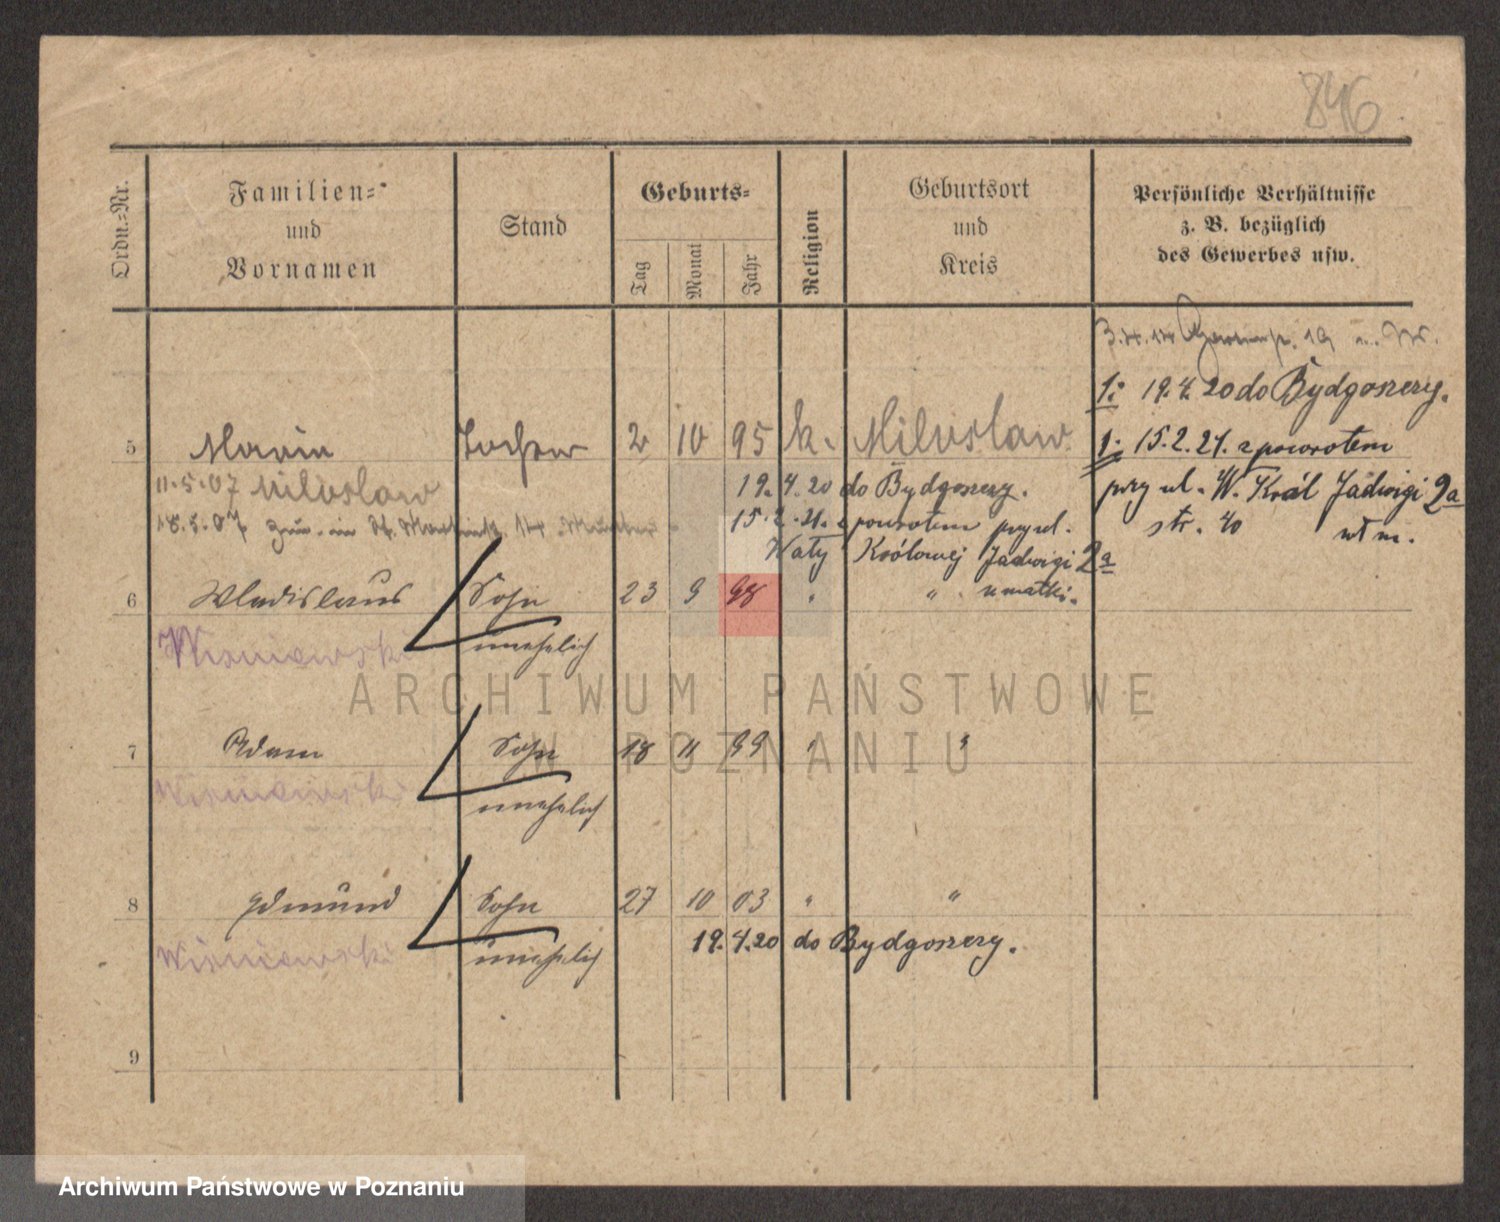 846
Ordn.-Nr.
Familien-
und
Vornamen
Stand
Geburts-
Tag
Monat
Jahr
Religion
Geburtsort
und
Kreis
Persönliche Verhältnisse
z. B. bezüglich
des Gewerbes usw.
3.4.14 19
1: 19.4.20 do Bydgoszczy.
5 Maria Tochter 2 10 95 k. Miloslaw
1: 15.2.21. z powrotem
11.5.07 Miloslaw
19.4.20 do Bydgoszczy.
przy ul. W. Król Jadwigi 2a
18.5.07 in St. Martinstr. 14
15.2.21. z powrotem przy ul.
str. 40
Wały Królowej Jadwigi 2a
6 Wladislaus Sohn 23 9 98 " " u matki.
Wisniewski unehelich
7 Adam Sohn 18 11 99 " "
Wisniewski unehelich
8 Edmund Sohn 27 10 03 " "
Wisniewski unehelich
19.4.20 do Bydgoszczy.
9
ARCHIWUM PAŃSTWOWE
W POZNANIU
Archiwum Państwowe w Poznaniu